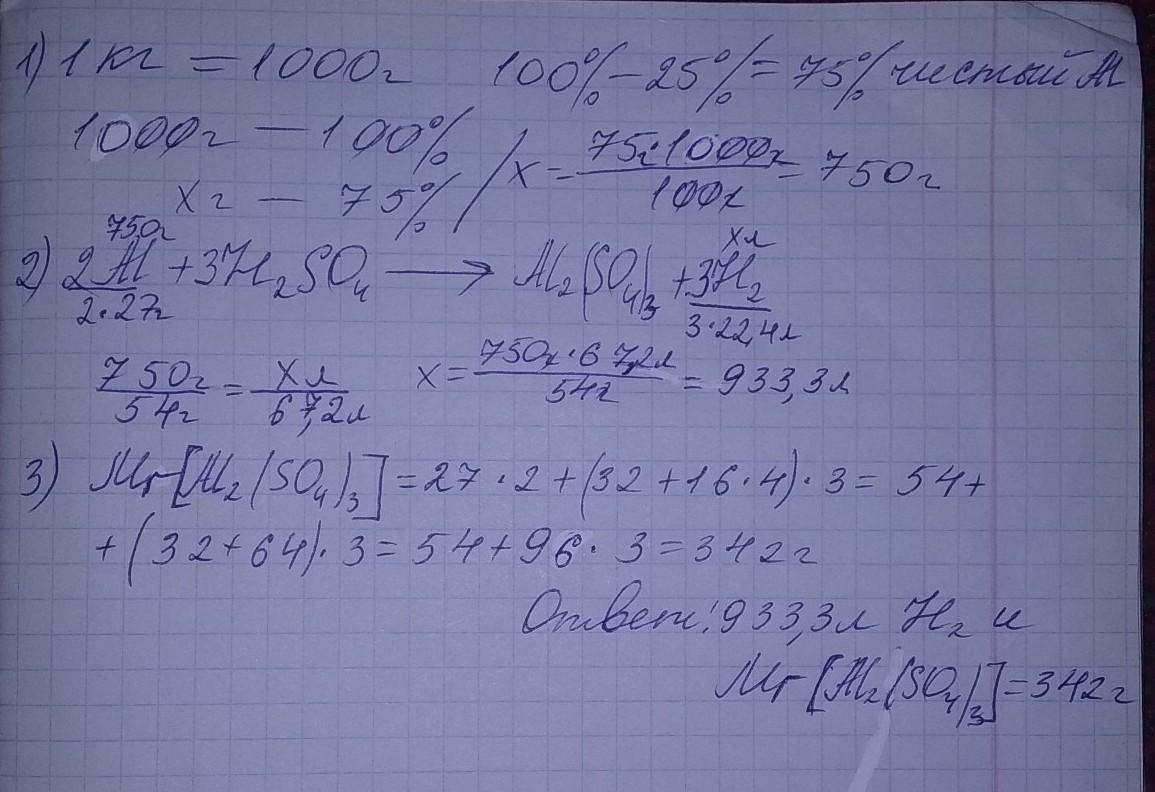 1) 1 кг = 1000г 100% - 25% = 75% чистый Al
1000г — 100% / x = 75г·1000г / 100г = 750г
x г — 75%
750г x л
2) 2Al + 3H₂SO₄ ⟶ Al₂(SO₄)₃ + 3H₂
2·27г 3·22,4л
750г / 54г = x л / 67,2л x = 750г·67,2л / 54г = 933,3л
3) Mr[Al₂(SO₄)₃] = 27·2 + (32 + 16·4)·3 = 54 +
+ (32 + 64)·3 = 54 + 96·3 = 342г
Ответ: 933,3л H₂ и
Mr[Al₂(SO₄)₃] = 342г